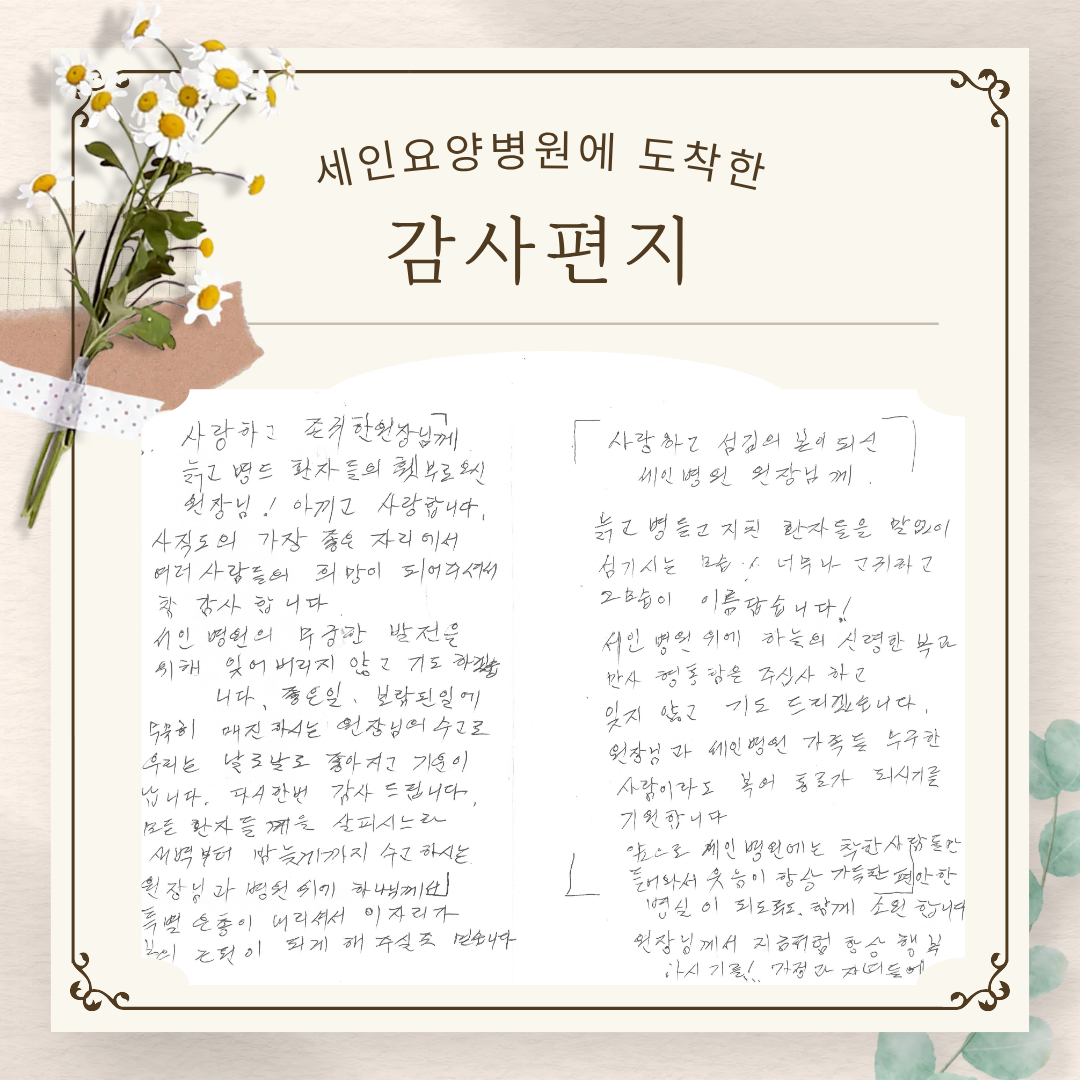 세인요양병원에 도착한
감사편지
사랑하고 존귀한원장님께
늙고 병드 환자들의 횃부로오신
원장님! 아끼고 사랑합니다.
사직도의 가장 좋은 자리에서
여러 사람들의 희망이 되어주셔서
참 감사 합니다
세인 병원의 무궁한 발전을
위해 잊어버리지 않고 기도 하겠습
니다. 좋은일, 보람된일에
매진하시는 원장님의 수고로
우리는 날로날로 좋아지고 기운이
납니다. 다시한번 감사 드립니다.
모든 환자들께을 살피시느라
새벽부터 밤늦게까지 수고하시는
원장님과 병원 위에 하나님께서
특별 은총이 내리셔서 이자리가
되게 해 주실줄 믿습니다
사랑하고 섬김의 본이되신
세인병원 원장님께.
늙고 병들고 지친 환자들을 말없이
섬기시는 모습! 너무나 고귀하고
그모습이 아름답습니다!
세인 병원위에 하늘의 신령한 복과
만사 형통함을 주십사 하고
잊지 않고 기도 드리겠습니다.
원장님과 세인병원 가족들 누구한
사람이라도 복의 통로가 되시기를
기원합니다
앞으로 세인병원에는 착한사람들만
들어와서 웃음이 항상 가득한 편안한
병실이 되도록. 함께 소원합니다
원장님께서 지금처럼 항상 행복
하시기를!! 가정과 자녀들에